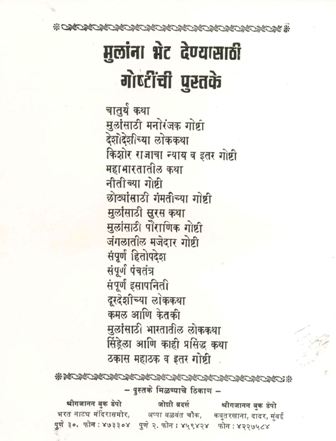 मुलांना भेट देण्यासाठी
गोष्टींची पुस्तके
चातुर्य कथा
मुलांसाठी मनोरंजक गोष्टी
देशोदेशीच्या लोककथा
किशोर राजाचा न्याय व इतर गोष्टी
महाभारतातील कथा
नीतीच्या गोष्टी
छोट्यांसाठी गंमतीच्या गोष्टी
मुलांसाठी सुरस कथा
मुलांसाठी पौराणिक गोष्टी
जंगलातील मजेदार गोष्टी
संपूर्ण हितोपदेश
संपूर्ण पंचतंत्र
संपूर्ण इसापनिती
दूरदेशीच्या लोककथा
कमल आणि केतकी
मुलांसाठी भारतातील लोककथा
सिंड्रेला आणि काही प्रसिद्ध कथा
ठकास महाठक व इतर गोष्टी
- पुस्तके मिळण्याचे ठिकाण -
श्रीगजानन बुक डेपो जोशी ब्रदर्स श्रीगजानन बुक डेपो
भरत नाट्य मंदिरासमोर, अप्पा बळवंत चौक, कबुतरखाना, दादर, मुंबई
पुणे ३०. फोन : ४७३३०४ पुणे २. फोन : ४५९४२४ फोन : ४२२७५८४